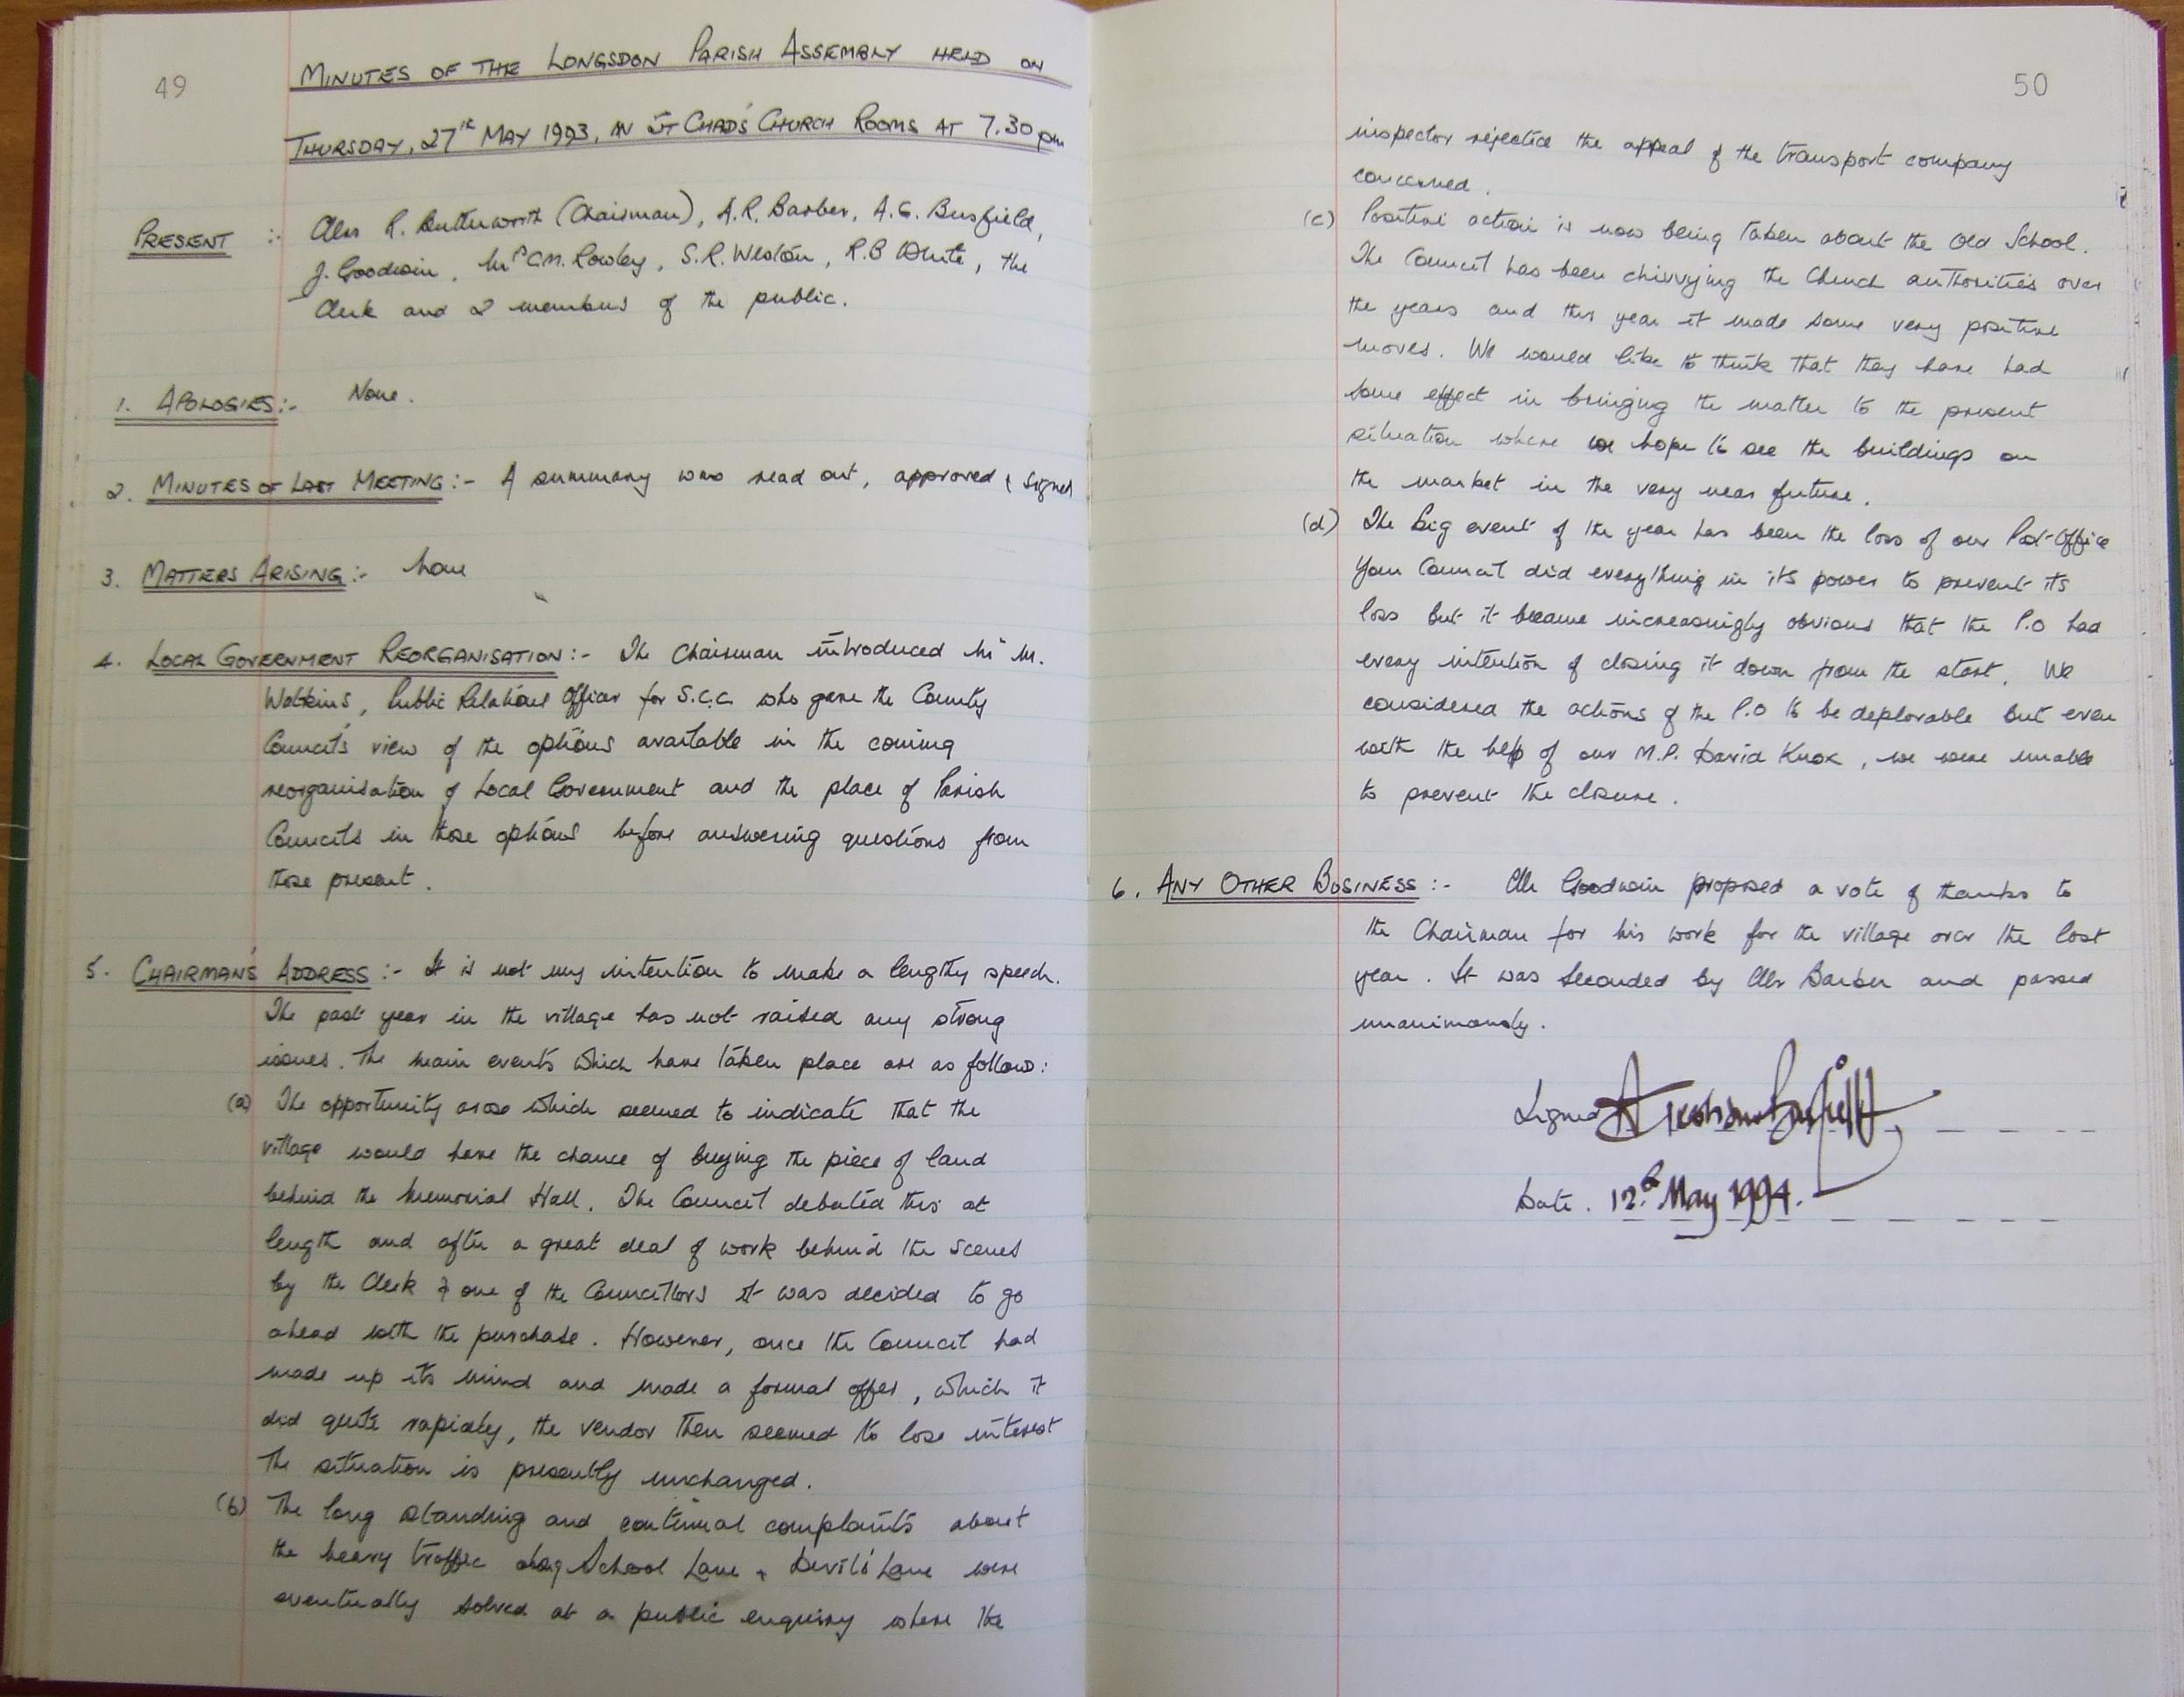 49
MINUTES OF THE LONGSDON PARISH ASSEMBLY HELD ON
THURSDAY, 27th MAY 1993, IN ST CHAD'S CHURCH ROOMS AT 7.30 pm
PRESENT :- Cllrs R. Butterworth (Chairman), A.R. Barber, A.G. Busfield,
J. Goodwin, Mrs C.M. Rowley, S.R. Weston, R.B White, the
Clerk and 2 members of the public.
1. APOLOGIES:- None.
2. MINUTES OF LAST MEETING:- A summary was read out, approved & signed
3. MATTERS ARISING:- None
4. LOCAL GOVERNMENT REORGANISATION:- The Chairman introduced Mr M.
Watkins, Public Relations Officer for S.C.C. who gave the County
Council's view of the options available in the coming
reorganisation of Local Government and the place of Parish
Councils in those options before answering questions from
those present.
5. CHAIRMAN'S ADDRESS:- It is not my intention to make a lengthy speech.
The past year in the village has not raised any strong
issues. The main events which have taken place are as follows:
(a) The opportunity arose which seemed to indicate that the
village would have the chance of buying the piece of land
behind the Memorial Hall. The Council debated this at
length and after a great deal of work behind the scenes
by the Clerk & one of the Councillors it was decided to go
ahead with the purchase. However, once the Council had
made up its mind and made a formal offer, which it
did quite rapidly, the vendor then seemed to lose interest
The situation is presently unchanged.
(b) The long standing and continual complaints about
the heavy traffic along School Lane & Devil's Lane were
eventually solved at a public enquiry where the
50
inspector rejected the appeal of the transport company
concerned.
(c) Positive action is now being taken about the Old School.
The Council has been chivvying the Church authorities over
the years and this year it made some very positive
moves. We would like to think that they have had
some effect in bringing the matter to the present
situation where we hope to see the buildings on
the market in the very near future.
(d) The big event of the year has been the loss of our Post-Office
Your Council did everything in its power to prevent its
loss but it became increasingly obvious that the P.O had
every intention of closing it down from the start. We
considered the actions of the P.O to be deplorable but even
with the help of our M.P. David Knox, we were unable
to prevent the closure.
6. ANY OTHER BUSINESS:- Cllr Goodwin proposed a vote of thanks to
the Chairman for his work for the village over the last
year. It was seconded by Cllr Barber and passed
unanimously.
Signed
Date. 12th May 1994.